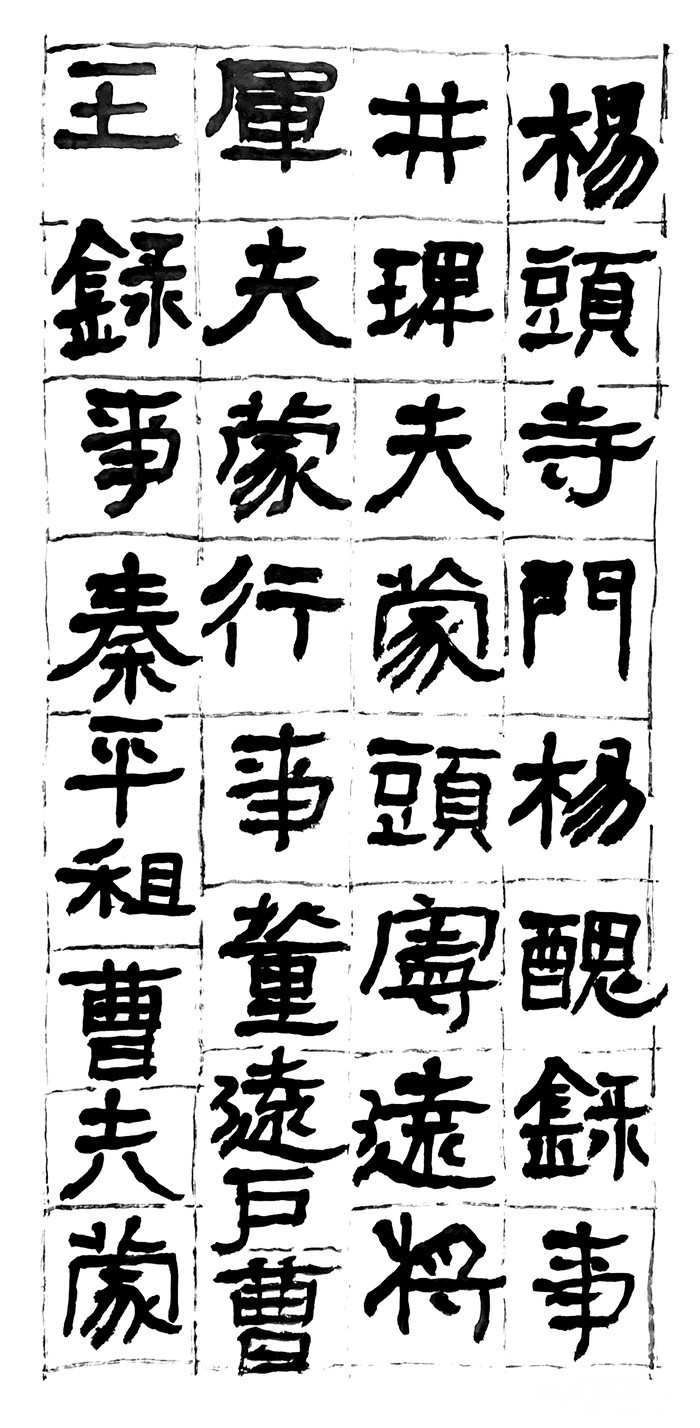 楊頭寺門楊醜錄事
井琕夫蒙頭寧遠將
軍夫蒙行事董遠戶曹
王錄事秦平祖曹夫蒙